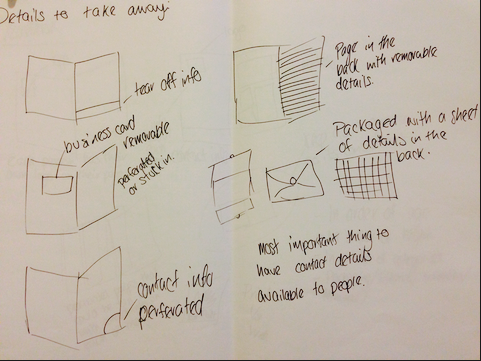 Details to take away:
tear off info
business card
removable
perforated
or stuck in.
contact info
perforated
Page in the
back with removable
details.
Packaged with a sheet
of details in the
back.
most important thing to
have contact details
available to people.